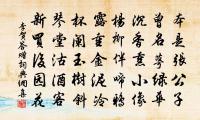 本是張公子
曾名萼綠華
沉香熏小像
楊柳伴啼鴉
露重金泥冷
杯闌玉樹斜
琴堂沽酒客
新買後園花
李賀答贈詞典網